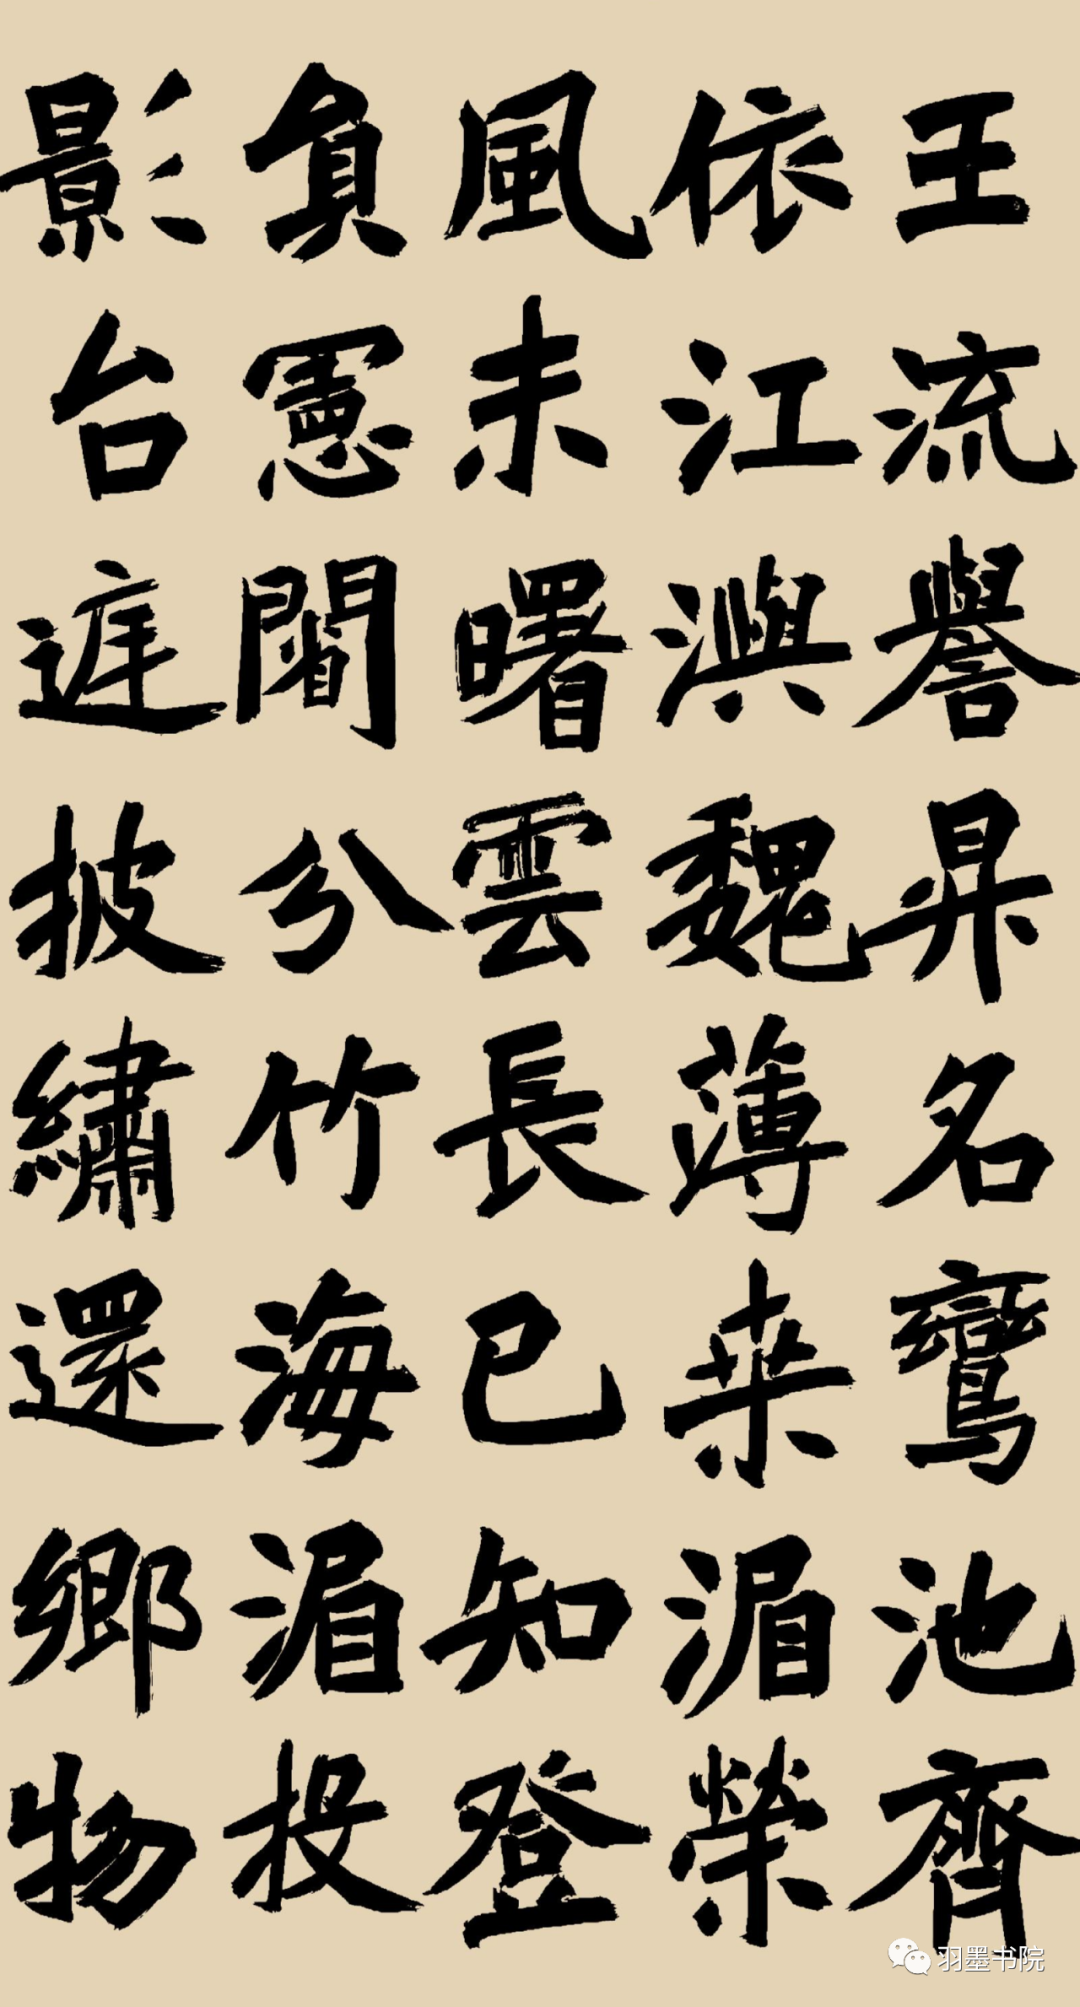 王流譽昇名鸞池齊
依江澳魏薄来湄榮
風未曙雲長已知登
負憲閣分竹海湄投
影台遅披繡還鄉物
羽墨书院